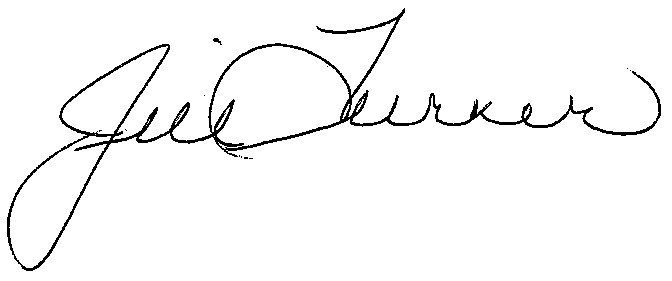 Jill Turker